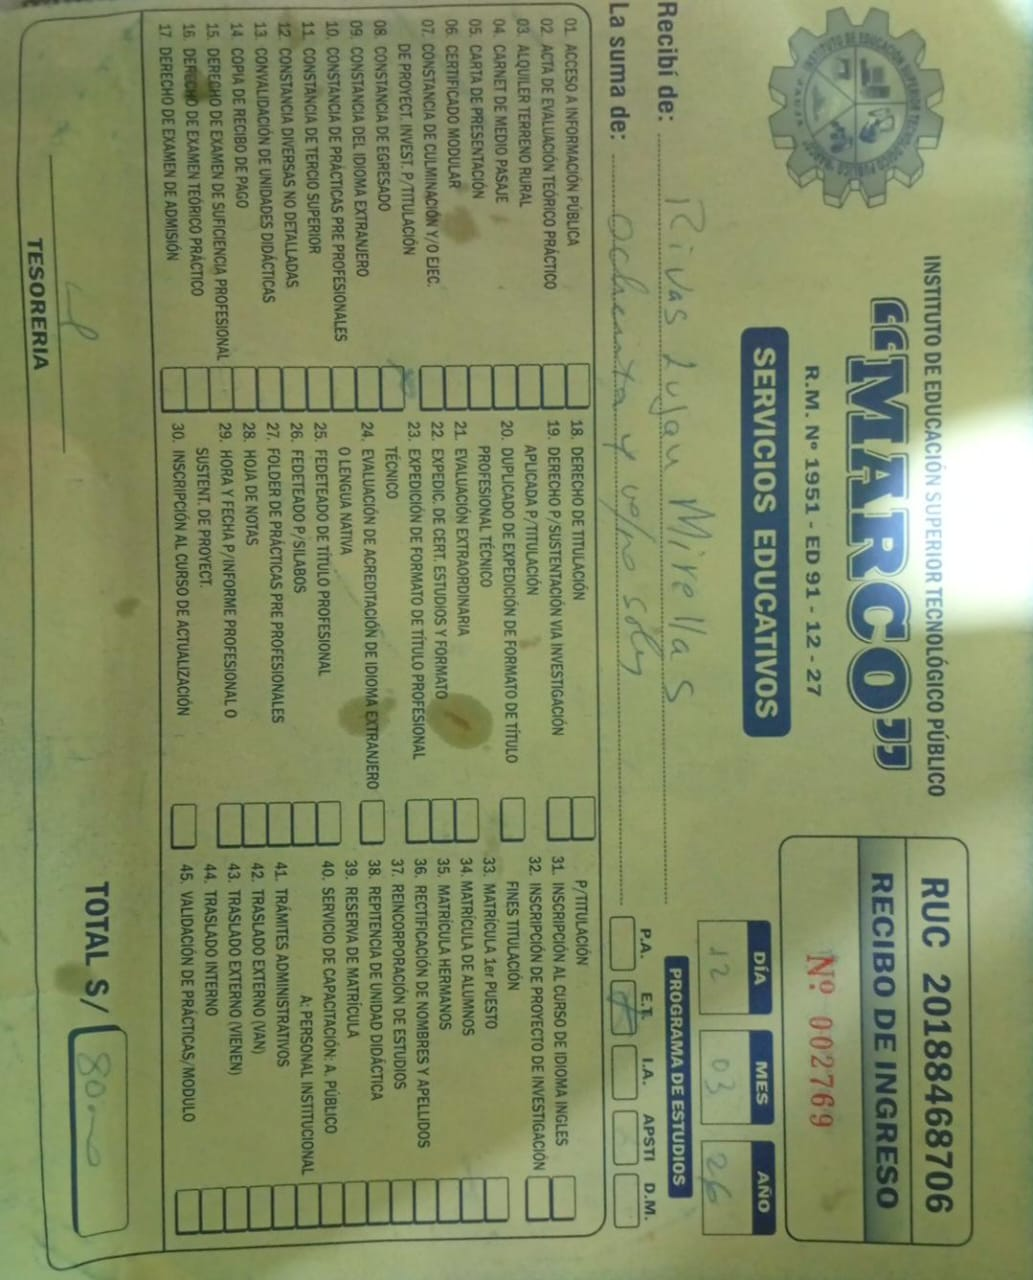 INSTITUTO DE EDUCACIÓN SUPERIOR TECNOLÓGICO PÚBLICO
“MARCO”
R.M. Nº 1951 - ED 91 - 12 - 27
SERVICIOS EDUCATIVOS
RUC 20188468706
RECIBO DE INGRESO
Nº 002769
DÍA MES AÑO
12 03 26
PROGRAMA DE ESTUDIOS
P.A. E.T. I.A. APSTI D.M.
Recibí de: Rivas Lujan Mirella S
La suma de: ochenta y
01. ACCESO A INFORMACIÓN PÚBLICA
02. ACTA DE EVALUACIÓN TEÓRICO PRÁCTICO
03. ALQUILER TERRENO RURAL
04. CARNET DE MEDIO PASAJE
05. CARTA DE PRESENTACIÓN
06. CERTIFICADO MODULAR
07. CONSTANCIA DE CULMINACIÓN Y/O EJEC.
DE PROYECT. INVEST. P/TITULACIÓN
08. CONSTANCIA DE EGRESADO
09. CONSTANCIA DEL IDIOMA EXTRANJERO
10. CONSTANCIA DE PRÁCTICAS PRE PROFESIONALES
11. CONSTANCIA DE TERCIO SUPERIOR
12 CONSTANCIA DIVERSAS NO DETALLADAS
13 CONVALIDACIÓN DE UNIDADES DIDÁCTICAS
14 COPIA DE RECIBO DE PAGO
15. DERECHO DE EXAMEN DE SUFICIENCIA PROFESIONAL
16 DERECHO DE EXAMEN TEÓRICO PRÁCTICO
17 DERECHO DE EXAMEN DE ADMISIÓN
18. DERECHO DE TITULACIÓN
19. DERECHO P/SUSTENTACIÓN VIA INVESTIGACIÓN
APLICADA P/TITULACIÓN
20. DUPLICADO DE EXPEDICIÓN DE FORMATO DE TÍTULO
PROFESIONAL TÉCNICO
21. EVALUACIÓN EXTRAORDINARIA
22. EXPEDIC. DE CERT. ESTUDIOS Y FORMATO
23. EXPEDICIÓN DE FORMATO DE TÍTULO PROFESIONAL
TÉCNICO
24. EVALUACIÓN DE ACREDITACIÓN DE IDIOMA EXTRANJERO
O LENGUA NATIVA
25. FEDETEADO DE TÍTULO PROFESIONAL
26. FEDETEADO P/SILABOS
27. FOLDER DE PRÁCTICAS PRE PROFESIONALES
28. HOJA DE NOTAS
29. HORA Y FECHA P/INFORME PROFESIONAL O
SUSTENT. DE PROYECT.
30. INSCRIPCIÓN AL CURSO DE ACTUALIZACIÓN
P/TITULACIÓN
31. INSCRIPCIÓN AL CURSO DE IDIOMA INGLES
32. INSCRIPCIÓN DE PROYECTO DE INVESTIGACIÓN
FINES TITULACIÓN
33. MATRÍCULA 1er PUESTO
34. MATRÍCULA DE ALUMNOS
35. MATRÍCULA HERMANOS
36. RECTIFICACIÓN DE NOMBRES Y APELLIDOS
37. REINCORPORACIÓN DE ESTUDIOS
38. REPITENCIA DE UNIDAD DIDÁCTICA
39. RESERVA DE MATRÍCULA
40. SERVICIO DE CAPACITACIÓN: A. PÚBLICO
A: PERSONAL INSTITUCIONAL
41. TRÁMITES ADMINISTRATIVOS
42. TRASLADO EXTERNO (VAN)
43. TRASLADO EXTERNO (VIENEN)
44. TRASLADO INTERNO
45. VALIDACIÓN DE PRÁCTICAS/MODULO
TESORERIA
TOTAL S/